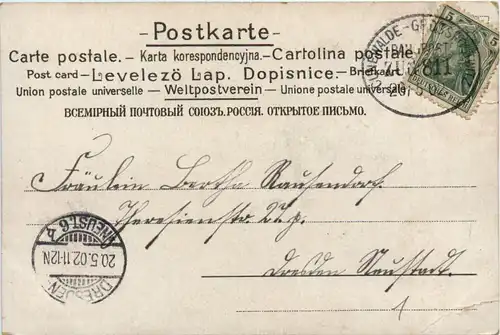 Postkarte
Carte postale. – Karta korespondencyjna. – Cartolina postale.
Post card – Levelező Lap. Dopisnice. – Briefkaart
Union postale universelle – Weltpostverein – Unione postale universale
ВСЕМІРНЫЙ ПОЧТОВЫЙ СОЮЗЪ. РОССІЯ. ОТКРЫТОЕ ПИСЬМО.
BAHNPOST
ZUG 811
5
Fräulein Bertha Rausendorf.
Theresienstr.
Dresden Neustadt.
1
DRESDEN
20.5.02.11-12N
NEUST. 6